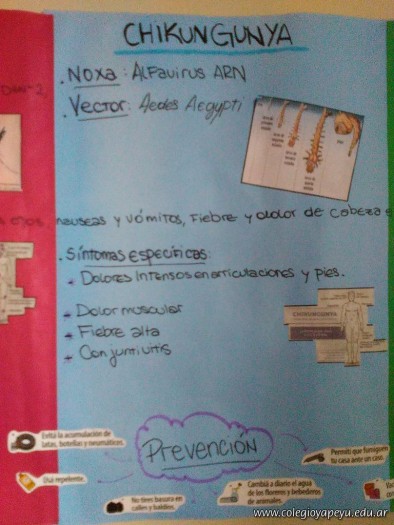 CHIKUNGUNYA
. Noxa: Alfavirus ARN
. Vector: Aedes Aegypti
ojos, nauseas y vómitos, Fiebre y dolor de cabeza e
. Síntomas específicas:
* Dolores intensos en articulaciones y pies.
* Dolor muscular
* Fiebre alta
* Conjuntivitis
CHIKUNGUNYA
Prevención
Evitá la acumulación de
latas, botellas y neumáticos.
Usá repelente.
No tires basura en
calles y baldíos.
Cambiá a diario el agua
de los floreros y bebederos
de animales.
Permití que fumiguen
tu casa ante un caso.
www.colegioyapeyu.edu.ar